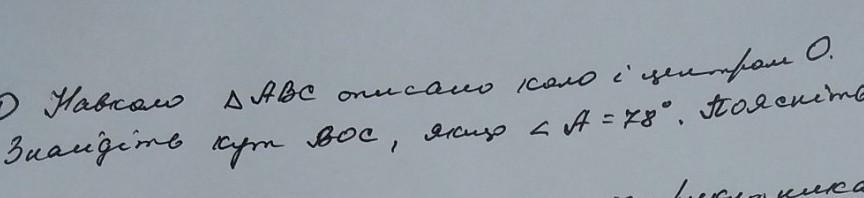 ) Навколо △ABC описано коло і центром O.
Знайдіть кут BOC, якщо ∠A = 78°. Поясніть